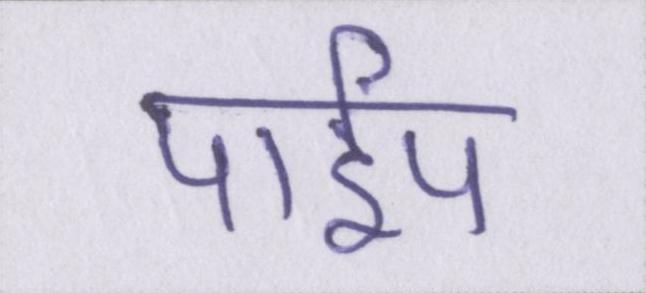 पाईप